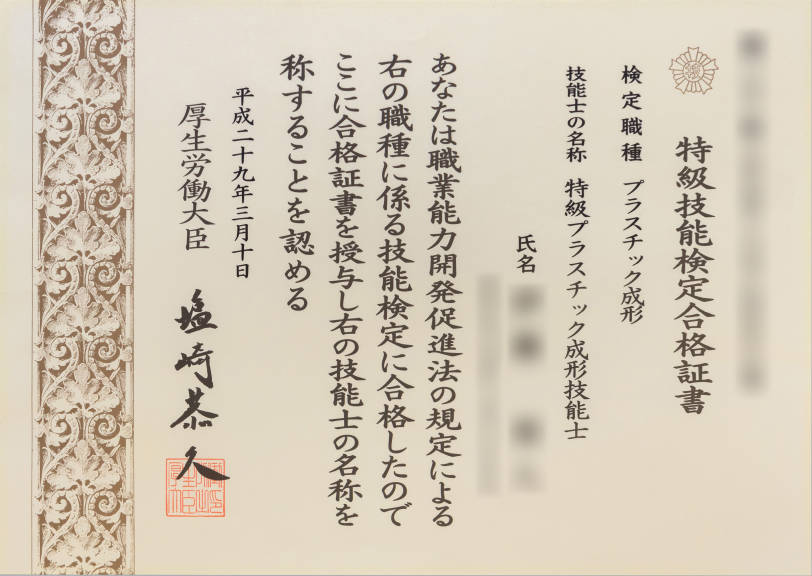 特級技能検定合格証書
検定職種 プラスチック成形
技能士の名称 特級プラスチック成形技能士
氏名
あなたは職業能力開発促進法の規定による
右の職種に係る技能検定に合格したので
ここに合格証書を授与し右の技能士の名称を
称することを認める
平成二十九年三月十日
厚生労働大臣 塩崎恭久